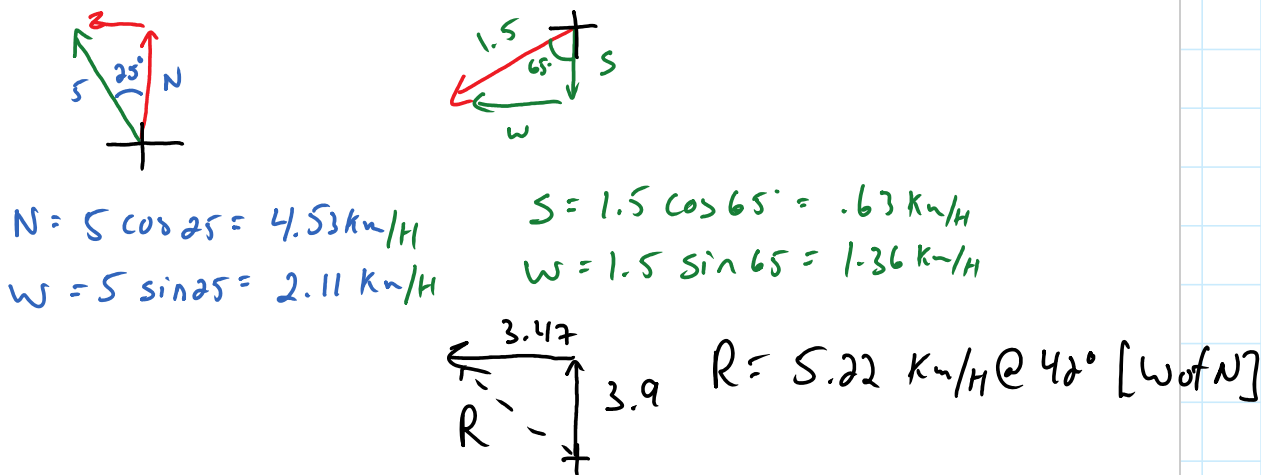 W
25°
5
N
1.5
65°
S
W
N = 5 cos 25 = 4.53 Km/H
W = 5 sin25 = 2.11 Km/H
S = 1.5 cos 65° = .63 Km/H
W = 1.5 sin 65 = 1.36 Km/H
3.47
3.9
R
R = 5.22 Km/H @ 42° [W of N]